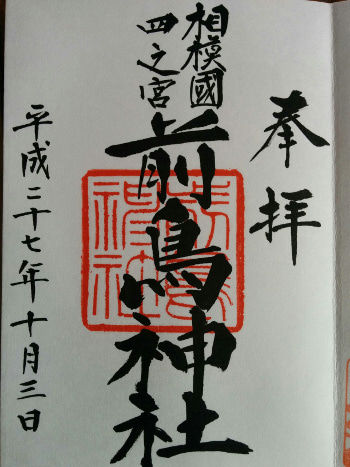 奉拝
相模國
四之宮
前鳥神社
平成二十七年十月三日